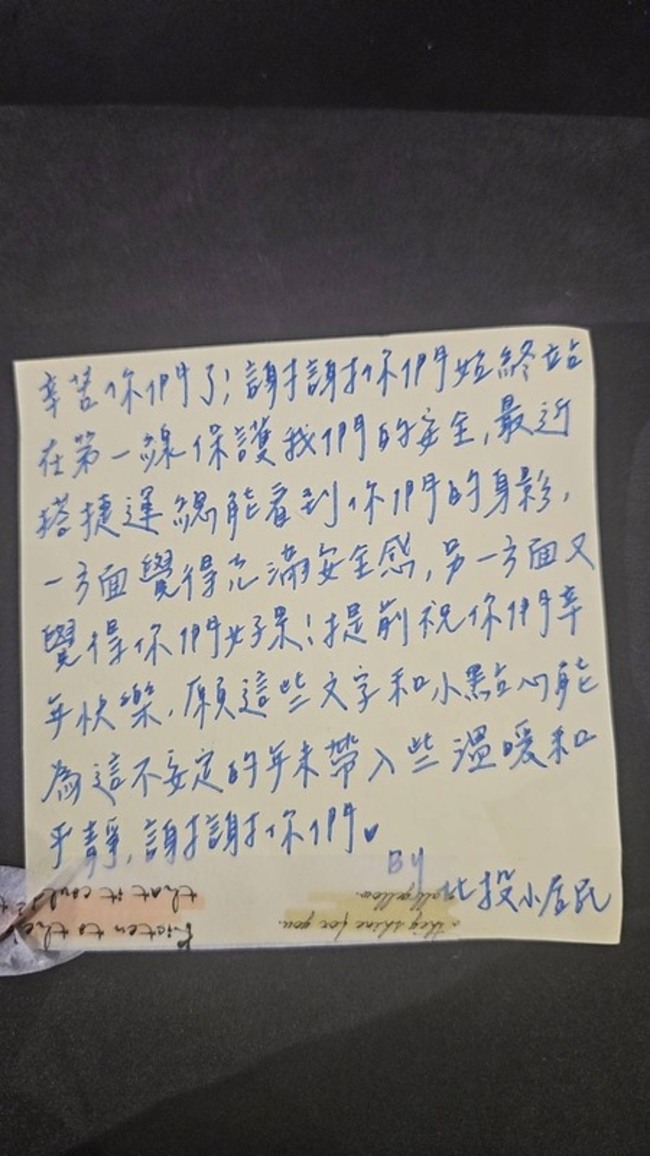 辛苦你們了!謝謝你們始終站
在第一線保護我們的安全,最近
搭捷運總能看到你們的身影,
一方面覺得充滿安全感,另一方面又
覺得你們好累!提前祝你們辛
年快樂,願這些文字和小點心能
為這不安定的年末帶入些溫暖和
平靜,謝謝你們
BY 北投小居民
that it could
Listen to the
they shine for you.
all yellow.